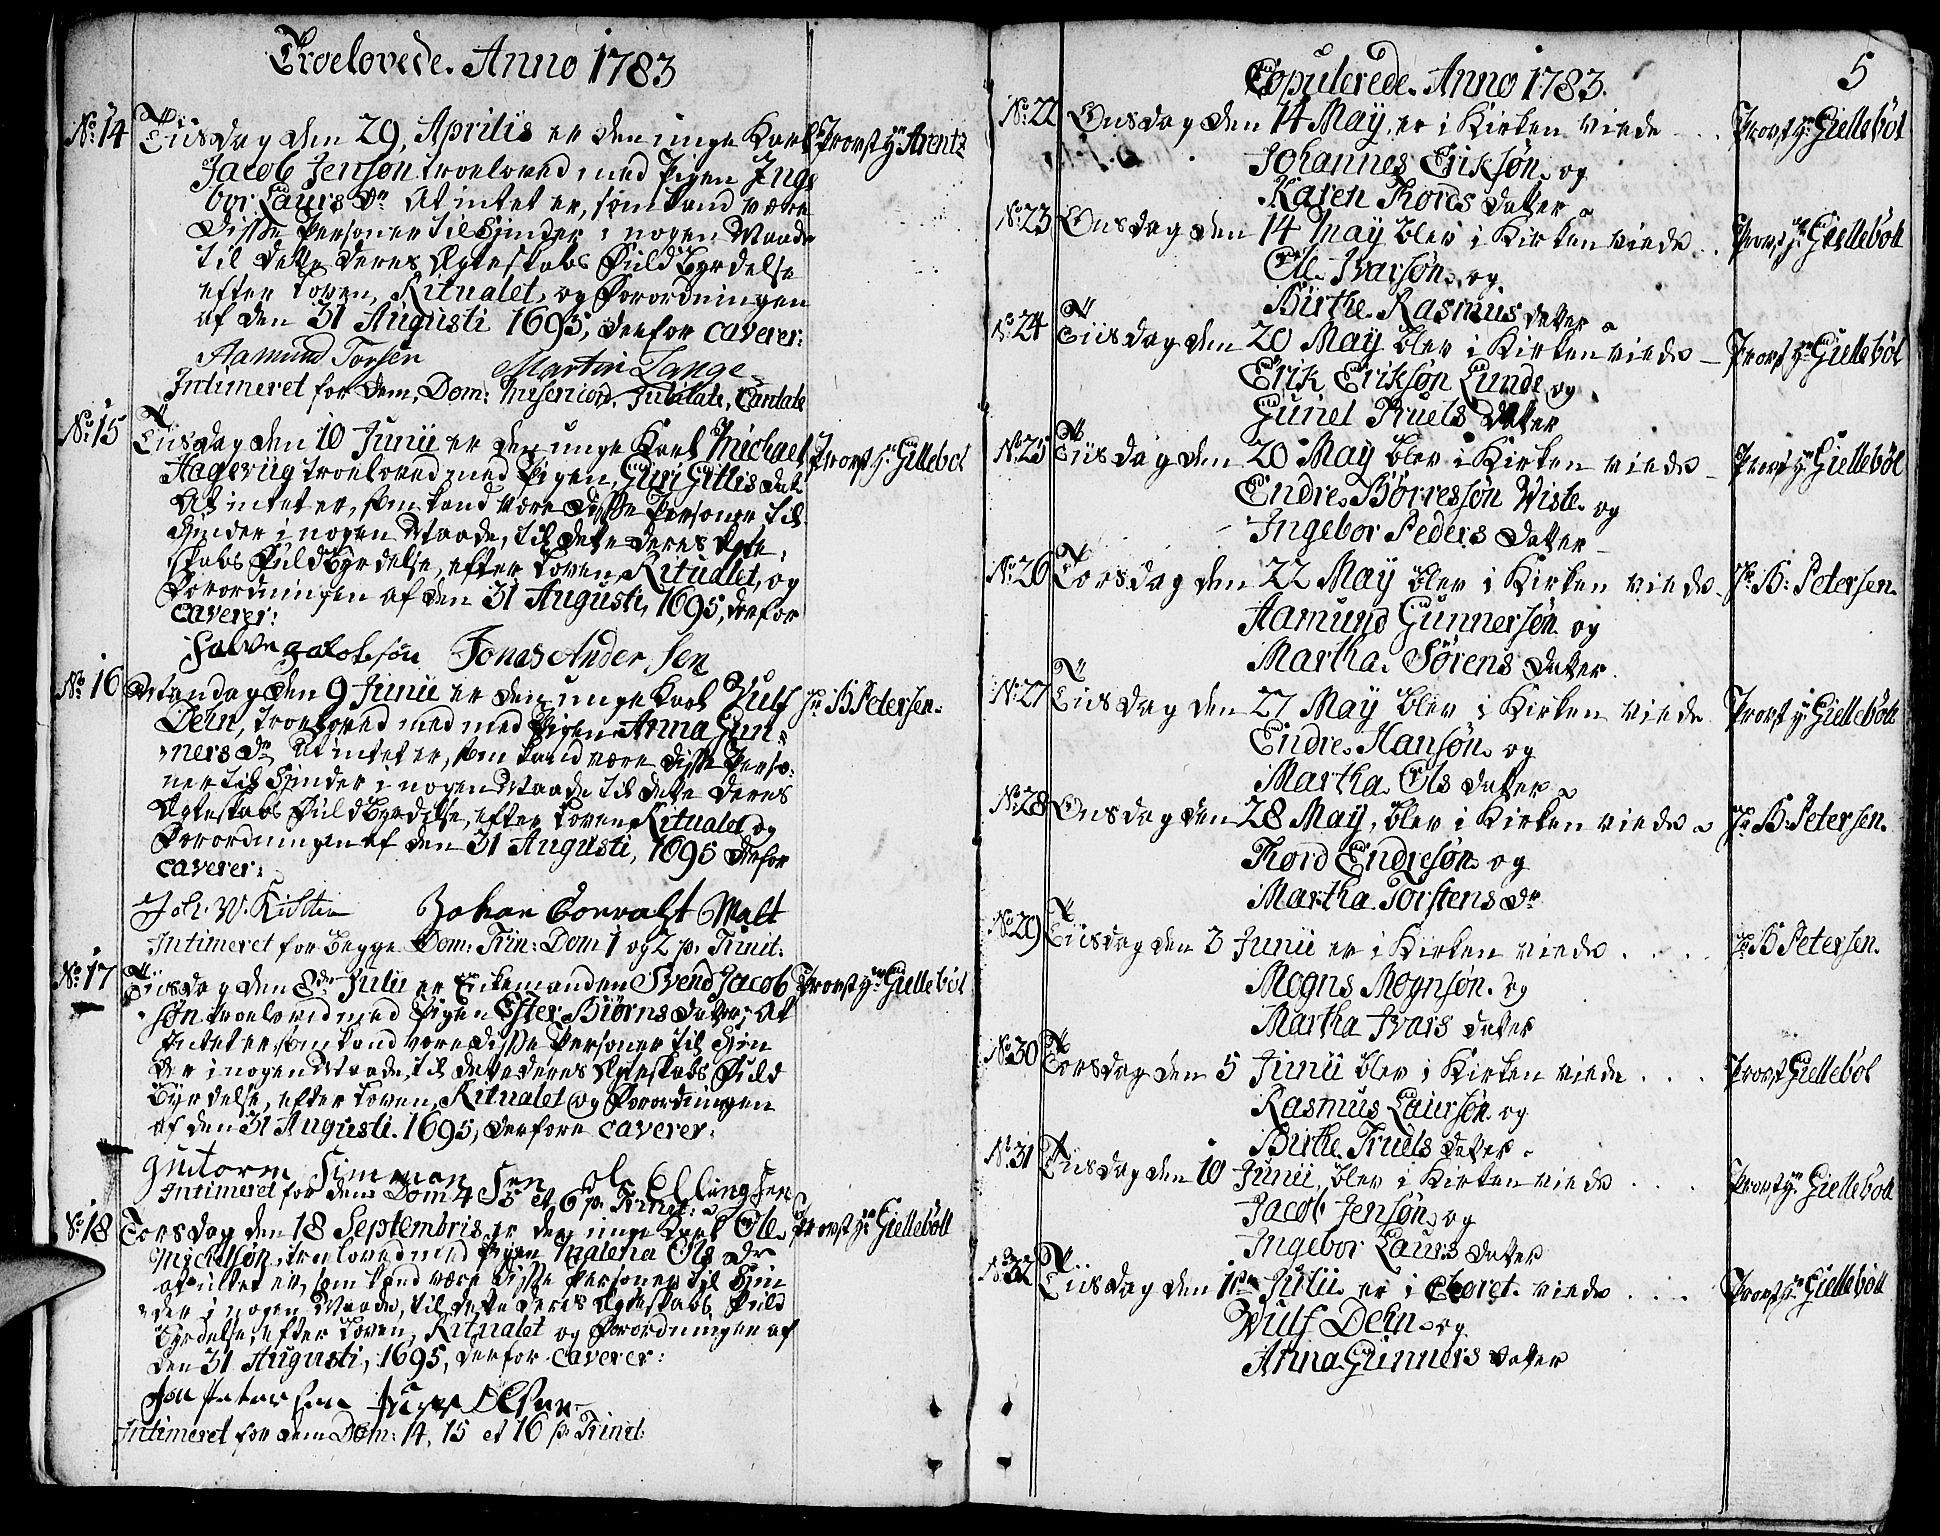 Troelovede. Anno 1783
No 14 Tiisdag den 29, Aprilis er den unge Karl Provst Hr Arentz
Jacob Jensøn troeloved med Pigen Inge
bor Laurs Dr At intet er, som kand være
Disse Personer til Hinder i nogen Maade
til dette deres Ægteskabs Fuldbyrdelse
efter Loven, Ritualet, og Forordningen
af den 31 Augusti 1695, derfor caverer:
Aamund Torsen Martin Lange
Intimeret for dem, Dom: Misericord. Jubilate, Cantate
No 15 Tiisdag den 10 Junii er den unge Karl Michael Provst Hr Gillebøl
Hagerüg troeloved med Pigen, Guri Gitlis Dat
At intet er, som kand være Disse Personer til
Hinder i nogen Maade, til dette deres Ægte,
skabs Fuldbyrdelse, efter Loven, Ritualet, og
Forordningen af den 31 Augusti, 1695, derfor
caverer:
Salve Jacobsøn Jonas Andersen
No 16 Mandag den 9 Junii er den unge Karl Vulf Hr B Petersen.
Dehn, troeloved med med Pigen Anna Gun-
ners Dr At intet er, som kand være Disse Perso-
ner til Hinder i nogen Maade til dette deres
Ægteskabs Fuldbyrdelse, efter Loven, Ritualet og
Forordningen af den 31 Augusti, 1695 derfor
caverer:
Joh. W. Kisten Johan Conralt Malt
Intimeret for begge Dom: Trin: Dom 1 og 2 p. Trinit:
No 17 Tiisdag den 8de Julii er Enkemanden Svend Jacob Provst Hr Giellebøl
søn troeloved med Pigen Ester Biørns Datter; At
Intet er som kand være Disse Personer til Hin
der i nogen Maade, til dette deres Ægteskabs Fuld
byrdelse, efter Loven, Ritualet og Forordningen
af den 31 Augusti. 1695, derfore caverer:
Gutorm Simmonsen ole Ellingsen
Intimeret for dem Dom 4 5 et 6 p. Trinit:
No 18 Torsdag den 18 Septembris er den unge Karl Ole Provst Hr Giellebøll
Mickelsøn, troeloved med Pigen Malena Ols Dr
at intet er, som kand være Disse Personer til Hin
der i nogen Maade, til dette deres Ægteskabs Fuld
byrdelse, efter Loven, Ritualet og Forordningen af
den 31 Augusti, 1695, derfor caverer:
Jon Petersen Olsen
Intimeret for dem Dom: 14, 15 et 16 p. Trinit:
Copulerede. Anno 1783. 5
No 22 Onsdag den 14 May, er i Kirken viede . . . Provst Hr Giellebøl
Johannes Eriksøn og
Karen Thords Datter
No 23 Onsdag den 14 May blev i Kirken viede . . Provst Hr Giellebøll
Ole Ivarsøn, og
Birthe Rasmus Datter
No 24 Tiisdag den 20 May blev i Kirken viede Provst Hr Giellebøl
Erik Eriksøn Lunde og
Gunel Truels Datter
No 25 Tiisdag den 20 May blev i Kirken viede Provst Hr Giellebøl
Endre Børresøn Viste og
Ingebor Peders Datter
No 26 Torsdag den 22 May blev i Kirken viede Hr B: Petersen.
Aamund Gunnersøn og
Martha Sørens Datter.
No 27 Tiisdag den 27 May blev i Kirken viede Provst Hr Giellebøll
Endre Hansøn og
Martha Ols Datter
No 28 Onsdag den 28 May, blev i Kirken viede Hr B: Petersen.
Thord Endresøn og
Martha Torstens Dr
No 29 Tiisdag den 3 Junii er i Kirken viede . . . . Hr B Petersen.
Mogns Mognsøn og
Martha Ivars Datter
No 30 Torsdag den 5 Junii blev i Kirken viede . . . Provst Giellebøl
Rasmus Laursøn og
Birthe Truels Datter
No 31 Tiisdag den 10 Junii, blev i Kirken viede . . . . Provst Hr Giellebøll
Jacob Jensøn og
Ingebor Laurs Datter
No 32 Tiisdag den 1ste Julii er i Choret viede . . . . Provst Hr Giellebøll
Wulf Dehn og
Anna Gunners Datter